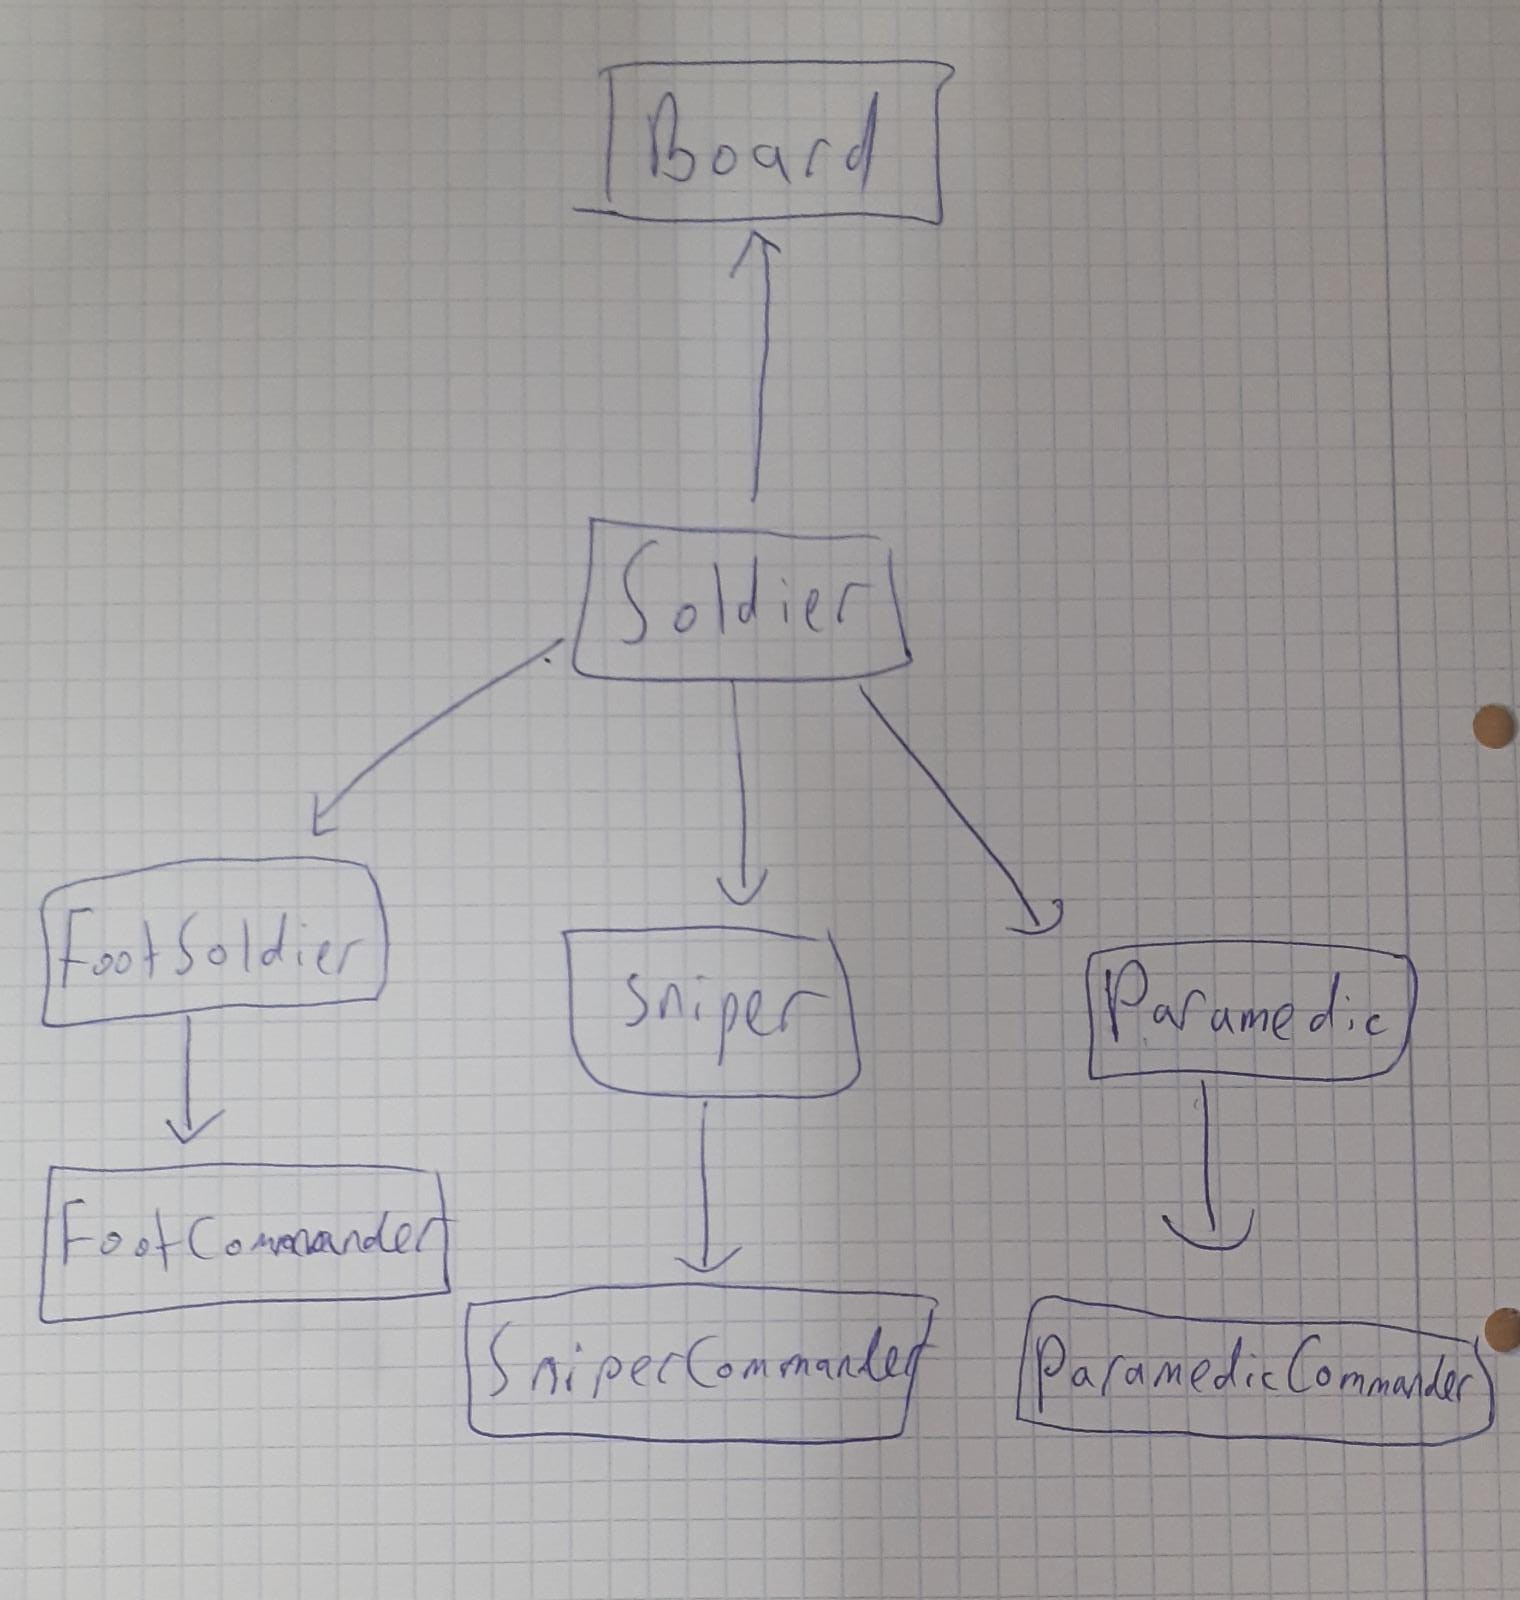 Board
Soldier
FootSoldier
Sniper
Paramedic
FootCommander
SniperCommander
ParamedicCommander